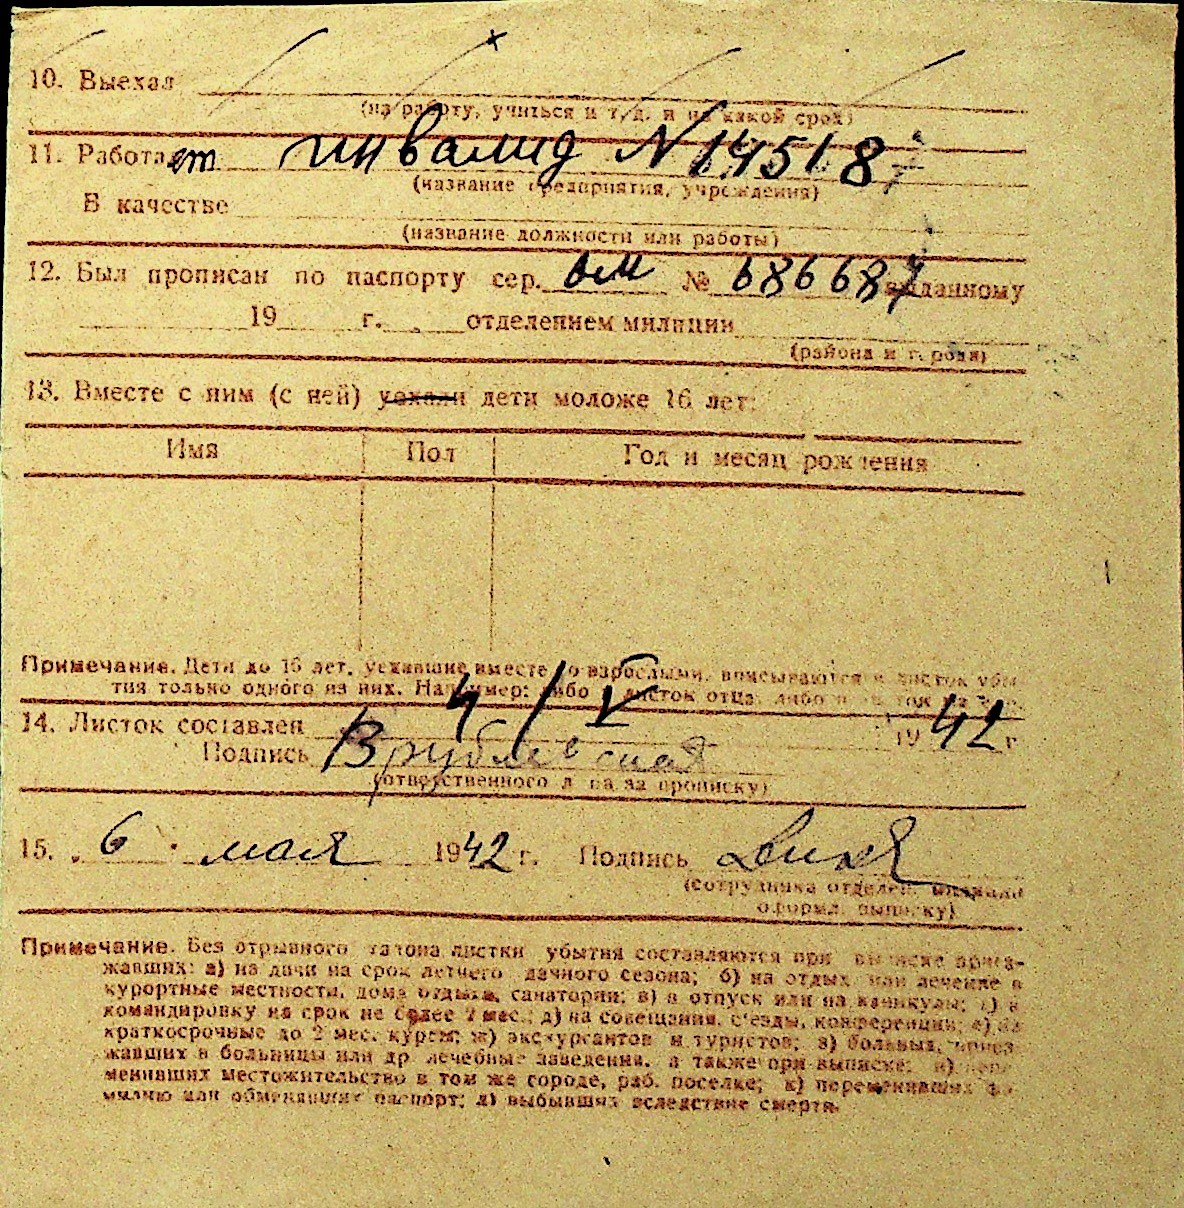 10. Выехал
(на работу, учиться и т. д. и на какой срок)
11. Работает инвалид N 145187
(название предприятия, учреждения)
В качестве
(название должности или работы)
12. Был прописан по паспорту сер. № 686687 выданному
19 г. отделением милиции
(района и города)
13. Вместе с ним (с ней) уехали дети моложе 16 лет:
Имя Пол Год и месяц рождения
Примечание. Дети до 16 лет, уехавшие вместе со взрослыми, вписываются в листок убы-
тия только одного из них. Например: либо в листок отца, либо в
14. Листок составлен 4/V 1942 г
Подпись Врублевская
(ответственного лица за прописку)
15. 6 мая 1942 г. Подпись
(сотрудника отделен. милиции
оформл. выписку)
Примечание. Без отрывного талона листки убытия составляются при выписке приез-
жавших: а) на дачи на срок летнего дачного сезона; б) на отдых или лечение в
курортные местности, дома отдыха, санатории; в) в отпуск или на каникулы; г) в
командировку на срок не более 2 мес.; д) на совещания, съезды, конференции; е) на
краткосрочные до 2 мес. курсы; ж) экскурсантов и туристов; з) больных, приез-
жавших в больницы или др. лечебные заведения, а также при выписке: и) пере-
менивших местожительство в том же городе, раб. поселке; к) переменивших фа-
милию или обменявших паспорт; л) выбывших вследствие смерти.